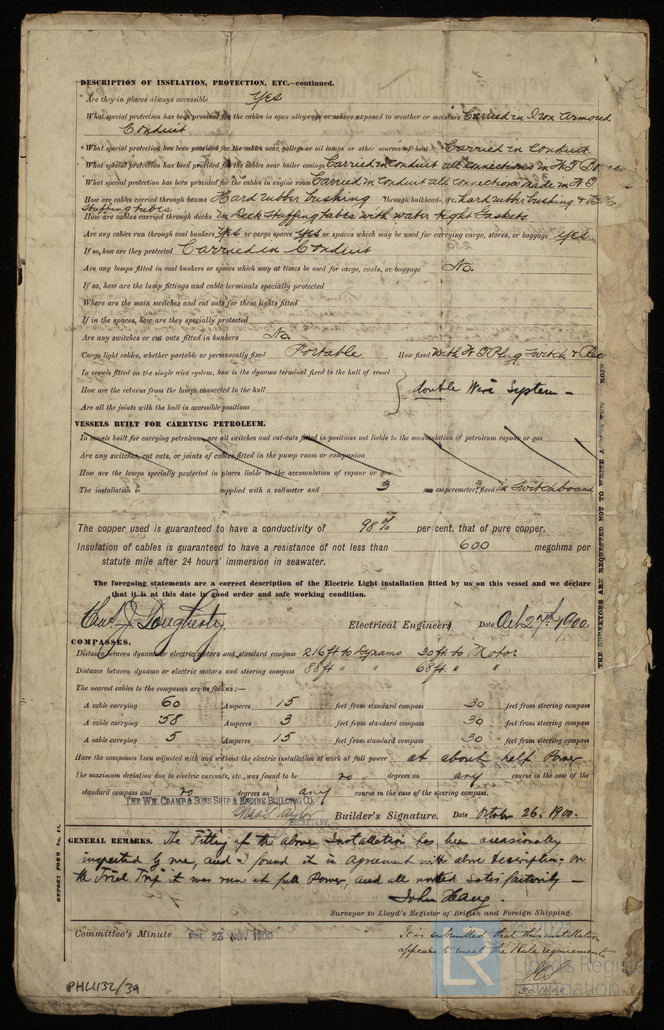 DESCRIPTION OF INSULATION, PROTECTION, ETC.—continued.
Are they in places always accessible Yes
What special protection has been provided for the cables in open alleyways or where exposed to weather or moisture Carried in Iron armored
Conduit
What special protection has been provided for the cables near galleys or oil lamps or other sources of heat Carried in Conduit
What special protection has been provided for the cables near boiler casings Carried in Conduit all connections in W.T. Bo
What special protection has been provided for the cables in engine room Carried in Conduit all connections made in W.T.
How are cables carried through beams Hard rubber bushing through bulkheads, &c. hard rubber bushing &
Stuffing tubes
How are cables carried through decks in Deck Stuffing tubes with water tight gaskets.
Are any cables run through coal bunkers Yes or cargo spaces Yes or spaces which may be used for carrying cargo, stores, or baggage Yes
If so, how are they protected Carried in Conduit
Are any lamps fitted in coal bunkers or spaces which may at times be used for cargo, coals, or baggage No.
If so, how are the lamp fittings and cable terminals specially protected
Where are the main switches and cut outs for these lights fitted
If in the spaces, how are they specially protected
Are any switches or cut outs fitted in bunkers No
Cargo light cables, whether portable or permanently fixed Portable How fixed With W.T. Plug Switch & Rec
In vessels fitted on the single wire system, how is the dynamo terminal fixed to the hull of vessel
How are the returns from the lamps connected to the hull double Wire System -
Are all the joints with the hull in accessible positions
VESSELS BUILT FOR CARRYING PETROLEUM.
In vessels built for carrying petroleum, are all switches and cut-outs fitted in positions not liable to the accumulation of petroleum vapour or gas
Are any switches, cut outs, or joints of cables fitted in the pump room or companion
How are the lamps specially protected in places liable to the accumulation of vapour or gas
The installation is supplied with a voltmeter and 3 amperemeters, fixed in Switchboard
The copper used is guaranteed to have a conductivity of 98% per cent. that of pure copper.
Insulation of cables is guaranteed to have a resistance of not less than 600 megohms per
statute mile after 24 hours' immersion in seawater.
The foregoing statements are a correct description of the Electric Light installation fitted by us on this vessel and we declare
that it is at this date in good order and safe working condition.
Chas J. Dougherty Electrical Engineers Date Oct 27th 1900.
COMPASSES.
Distance between dynamo or electric motors and standard compass 216 ft to Dynamo 30 ft to Motor
Distance between dynamo or electric motors and steering compass 88 ft " " 68 ft " "
The nearest cables to the compasses are as follows:—
A cable carrying 60 Amperes 15 feet from standard compass 30 feet from steering compass
A cable carrying 58 Amperes 3 feet from standard compass 30 feet from steering compass
A cable carrying 5 Amperes 15 feet from standard compass 30 feet from steering compass
Have the compasses been adjusted with and without the electric installation at work at full power at about half Power
The maximum deviation due to electric currents, etc., was found to be no degrees on any course in the case of the
standard compass and no degrees on any course in the case of the steering compass.
THE WM. CRAMP & SONS SHIP & ENGINE BUILDING CO.
Chas T. Taylor Builder's Signature. Date Octob 26. 1900.
SECRETARY.
GENERAL REMARKS. The Fitting of the above Installation has been occasionally
inspected by me, and I found it in agreement with above description. On
the Trial Trip it was run at full Power, and all worked satisfactorily —
John Haug.
Surveyor to Lloyd's Register of British and Foreign Shipping.
Committee's Minute 23 NOV 1900
It is submitted that this installation
appears to meet the Rule requirements
REPORT FORM No. 17.
THE SURVEYORS ARE REQUESTED NOT TO WRITE
PHL1132/39
LR
Lloyd's Register
Foundation